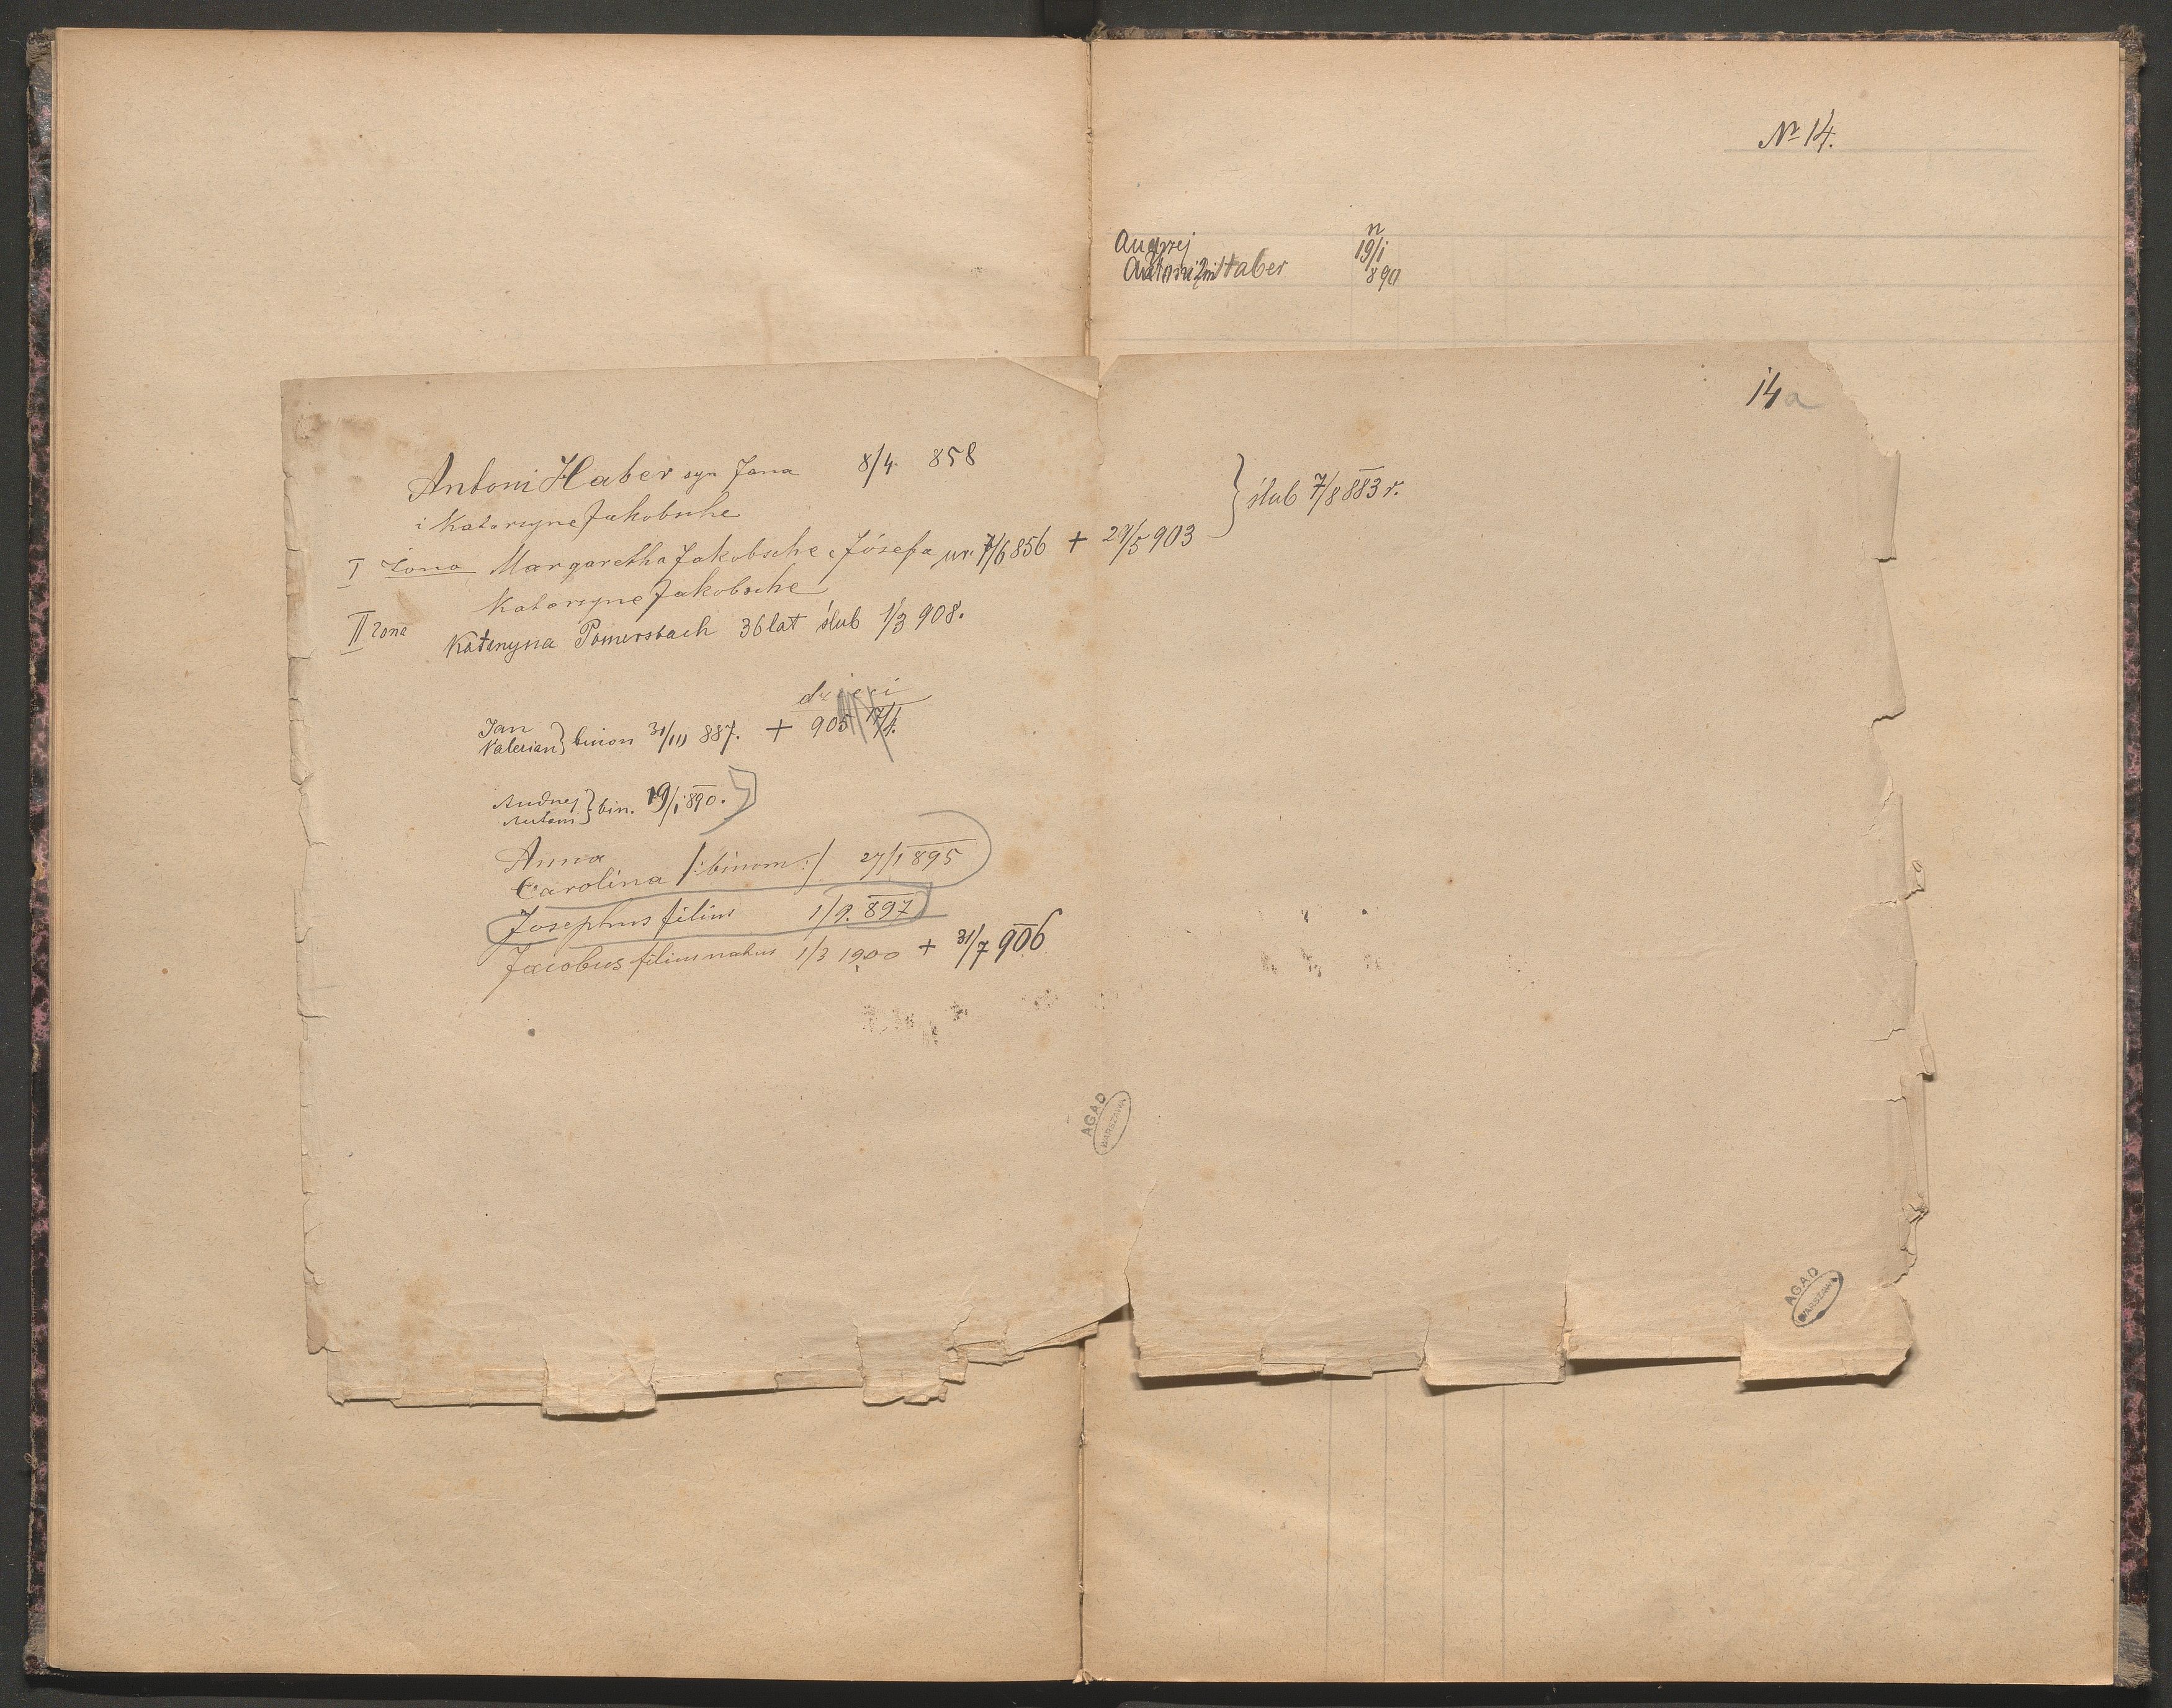 Nr 14.
Andrzej
Antoni 2im Haber
n
19/i
890
14a
Antoni Haber syn Jana 8/4. 858
i Katarzyne Jakobsche
} ślub 7/8 883 r.
I żona Margaretha Jakobsche c Józefa ur. 7/6 856 + 29/5 903
Katarzyne Jakobsche
II żona Katarzyna Pomersbach 36 lat ślub 1/3 908.
dzieci
Jan
Valerian } binom 31/III 887. + 905 17/4.
Andrzej
Antoni } bin. 19/i 890.
Anna
Carolina /: binom :/ 27/1 895
Josephus filius 1/9. 897
Jacobus filius natus 1/3 1900 + 31/7 906
AGAD
WARSZAWA
AGAD
WARSZAWA